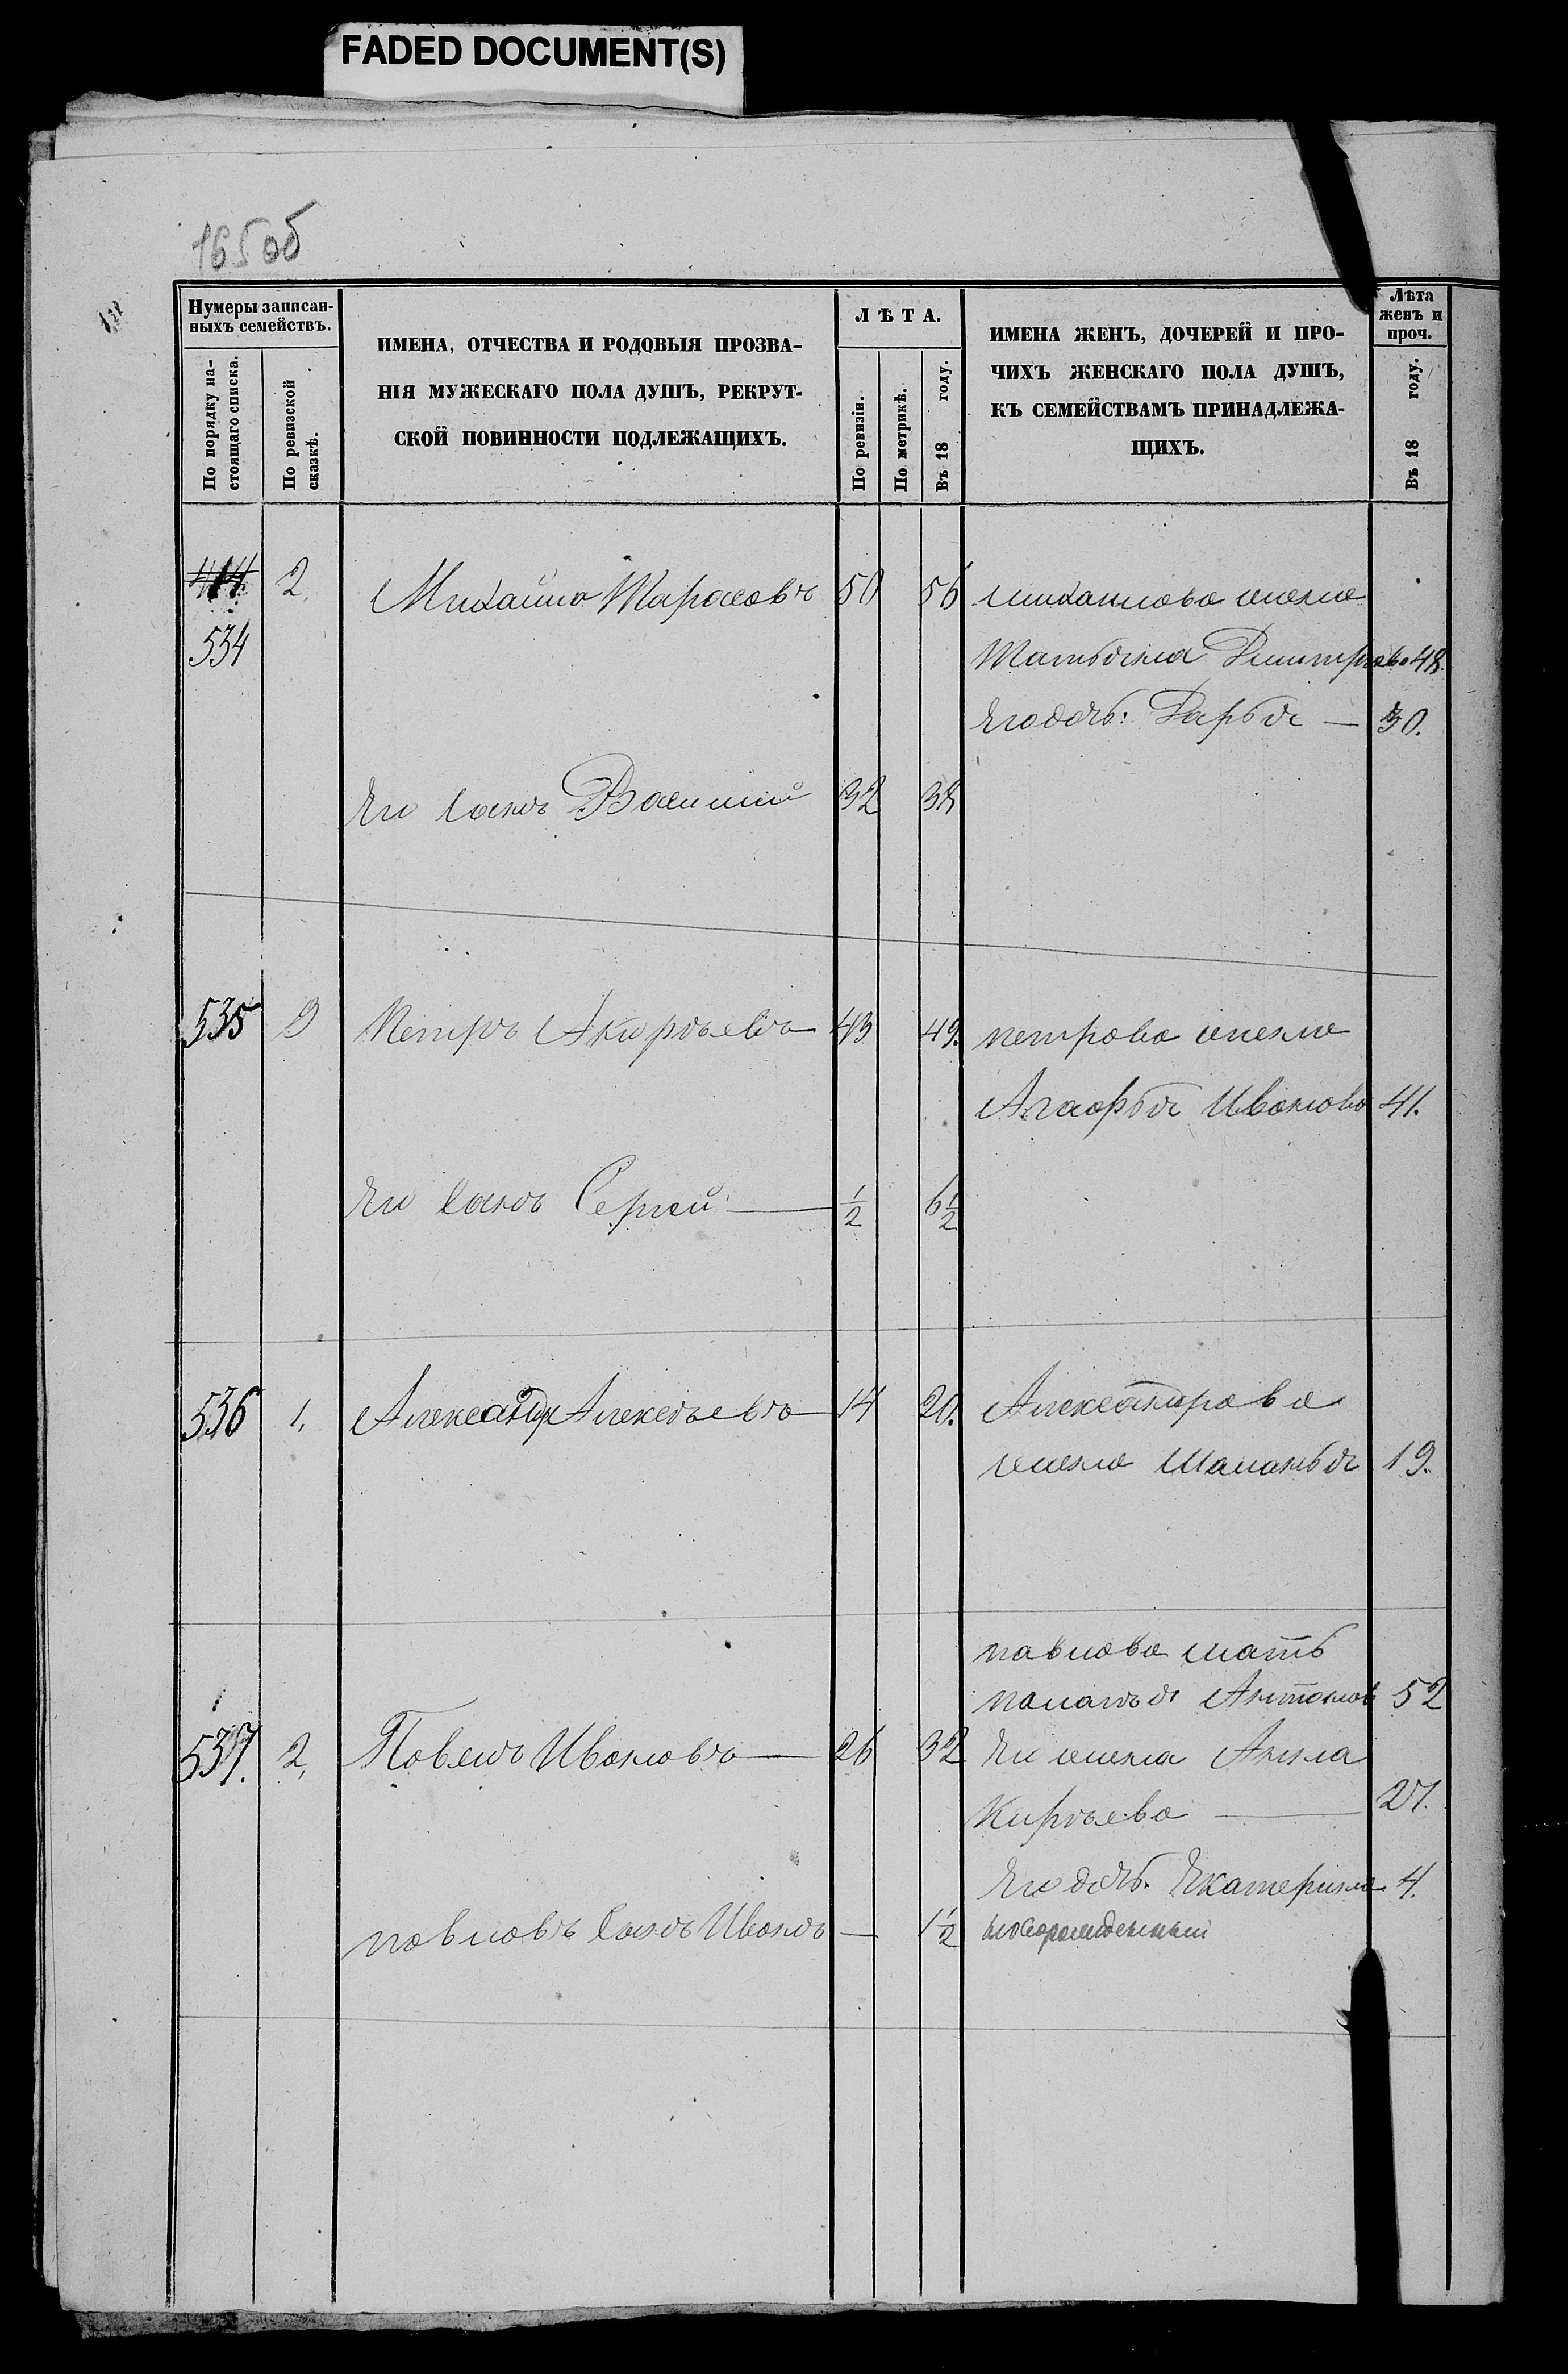 FADED DOCUMENT(S)
165 об
Нумеры записан-
ныхъ семействъ.
По порядку на-
стоящаго списка.
По ревизской
сказкѣ.
ИМЕНА, ОТЧЕСТВА И РОДОВЫЯ ПРОЗВА-
НІЯ МУЖЕСКАГО ПОЛА ДУШЪ, РЕКРУТ-
СКОЙ ПОВИННОСТИ ПОДЛЕЖАЩИХЪ.
ЛѢТА.
По ревизіи.
По метрикѣ.
Въ 18 году.
ИМЕНА ЖЕНЪ, ДОЧЕРЕЙ И ПРО-
ЧИХЪ ЖЕНСКАГО ПОЛА ДУШЪ,
КЪ СЕМЕЙСТВАМЪ ПРИНАДЛЕЖА-
ЩИХЪ.
Лѣта
женъ и
проч.
Въ 18 году.
414 2. Михайло Тарасовъ 50 56 михаилова жена
534 Татьяна Дмитрова 48.
Его дочь: Дарья — 30.
Его сынъ Василий 32 38
535 3 Петръ Акиръевъ 43 49. петрова жена
Агафья Иванова 41.
Его сынъ Сергей — 1/2 6 1/2
536 1. Александр Алексѣевъ 14 20. Александрова
жена Маланья 19.
павлова мать
палагѣя Антонов 52
537. 2. Павелъ Ивановъ — 26 32 Его жена Анна
Киръева — 27.
Его дочь. Екатерина 4.
павловъ сынъ Иванъ — 1 1/2 новорожденный